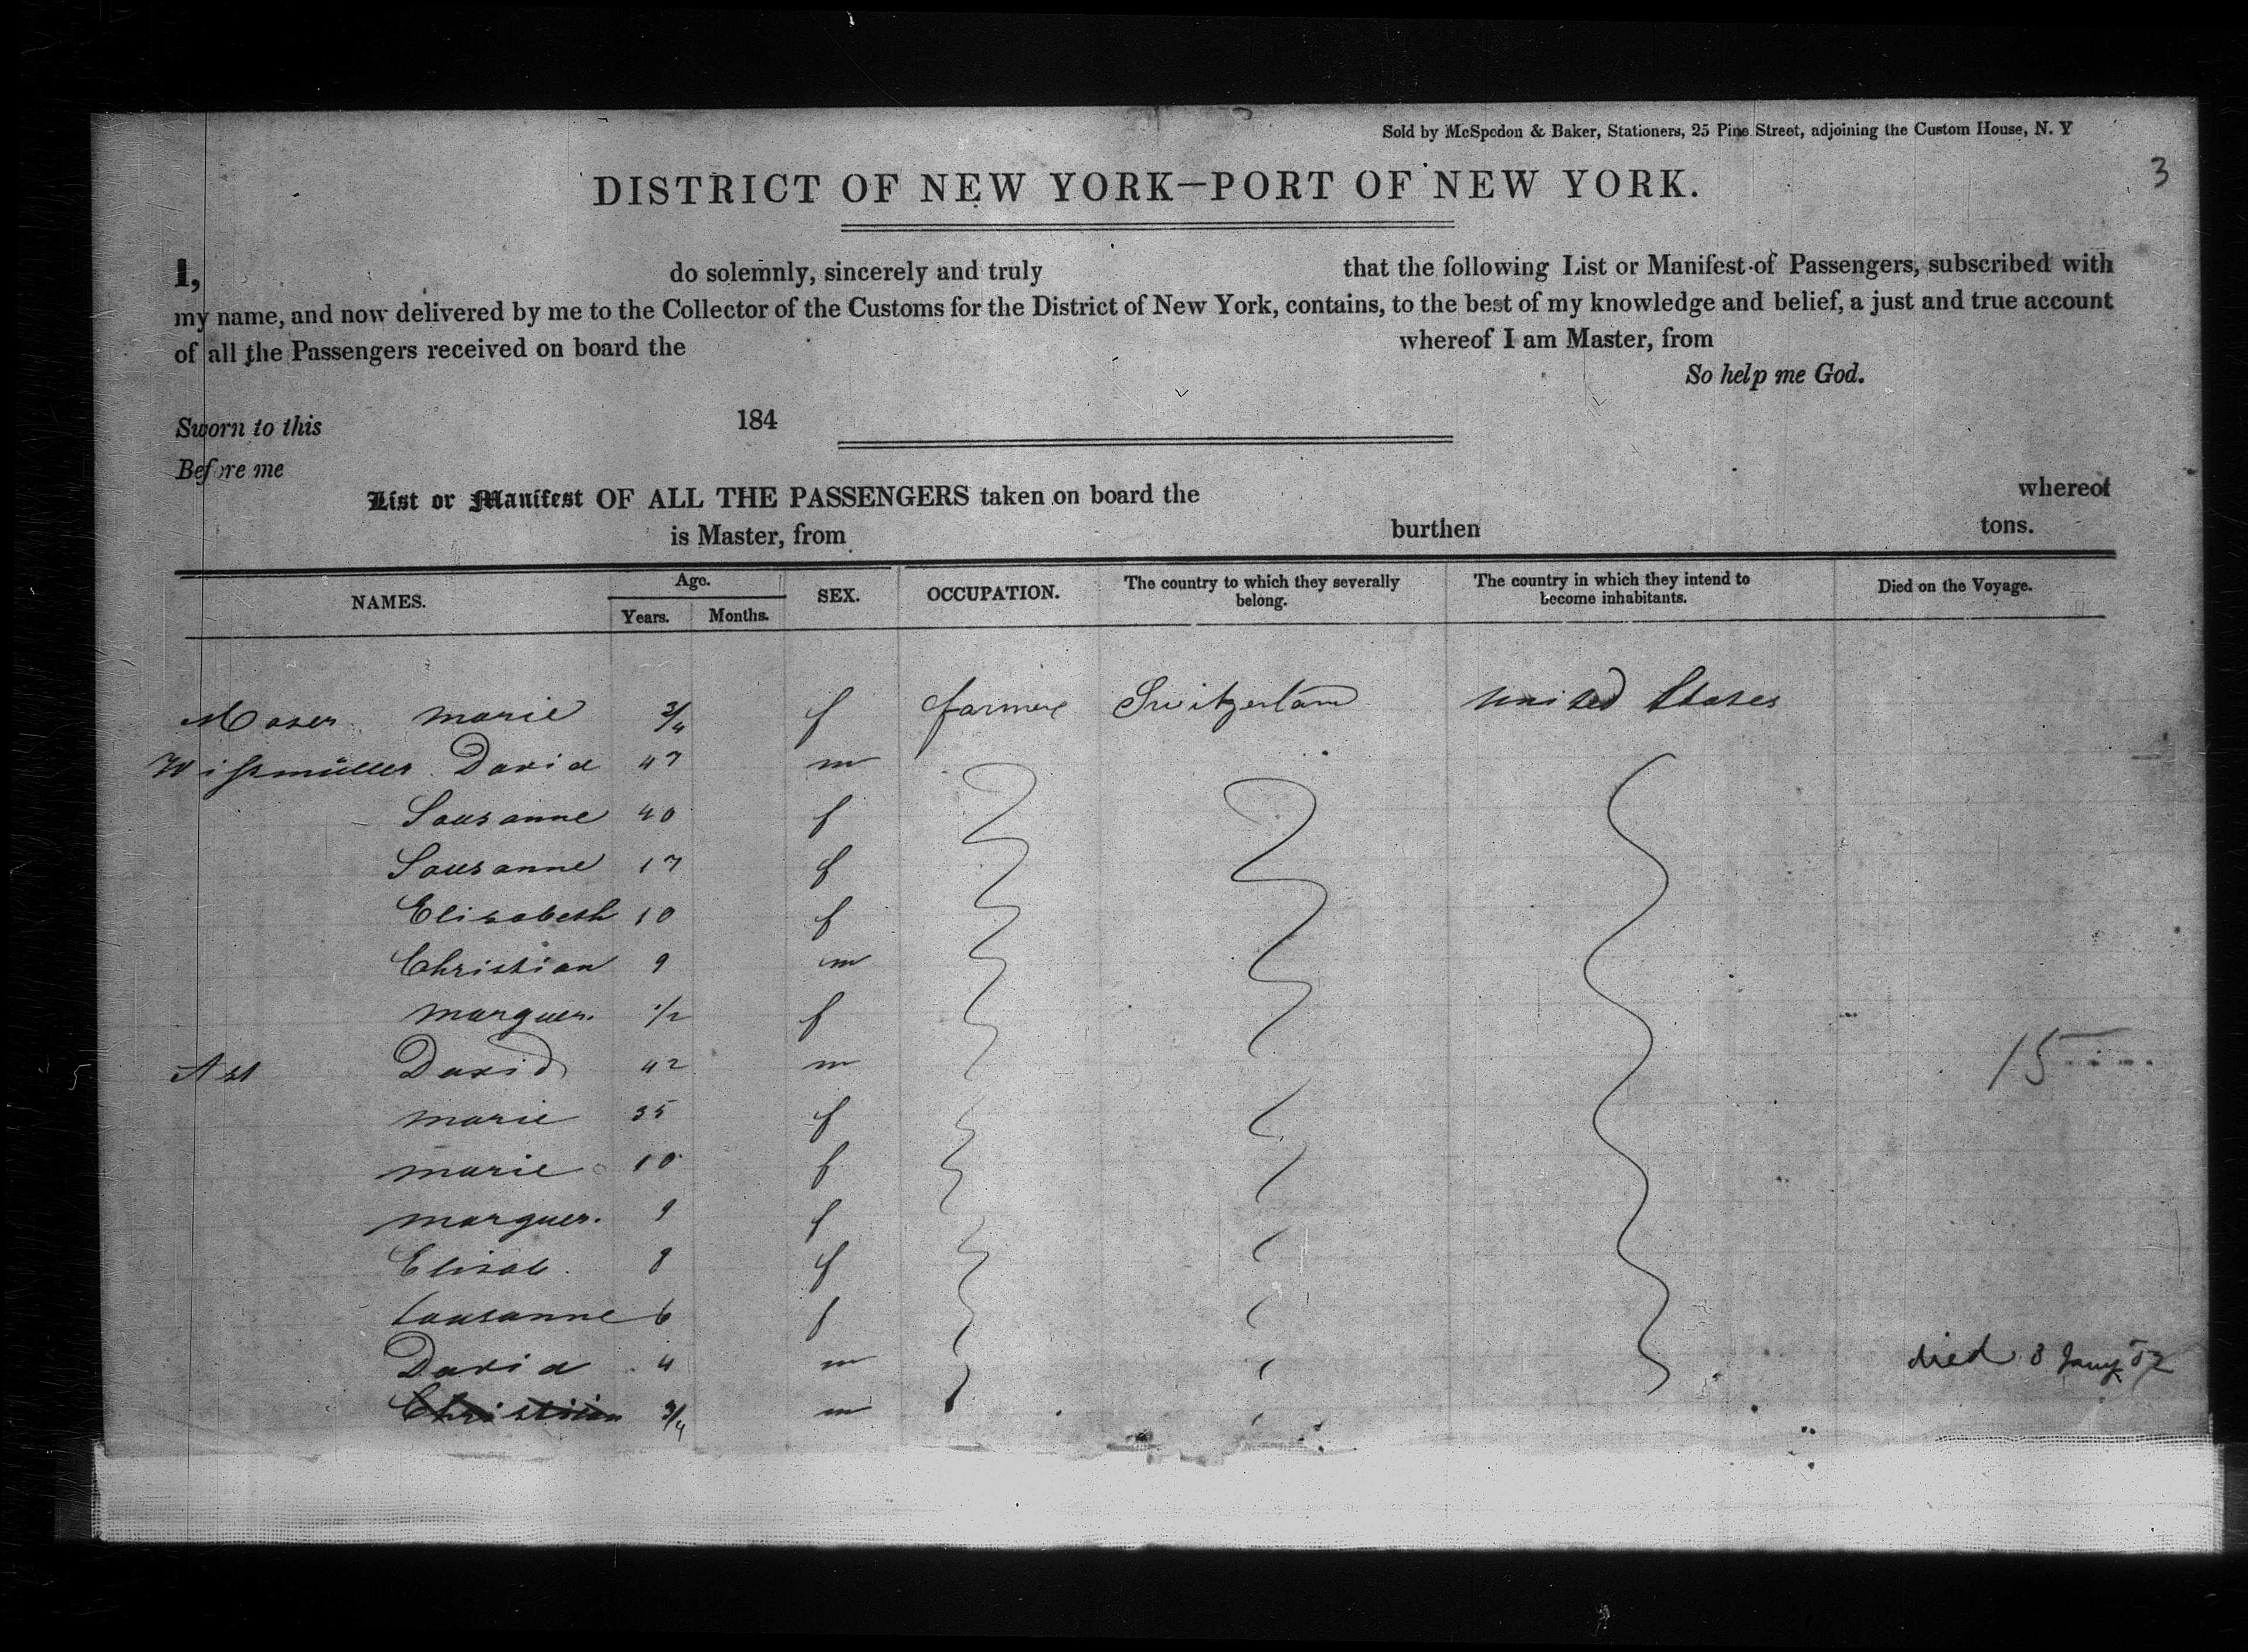 Sold by McSpedon & Baker, Stationers, 25 Pine Street, adjoining the Custom House, N. Y
3
DISTRICT OF NEW YORK—PORT OF NEW YORK.
I, do solemnly, sincerely and truly that the following List or Manifest of Passengers, subscribed with
my name, and now delivered by me to the Collector of the Customs for the District of New York, contains, to the best of my knowledge and belief, a just and true account
of all the Passengers received on board the whereof I am Master, from
So help me God.
Sworn to this 184
Before me
List or Manifest OF ALL THE PASSENGERS taken on board the whereof
is Master, from burthen tons.
NAMES. Age. Years. Months. SEX. OCCUPATION. The country to which they severally belong. The country in which they intend to become inhabitants. Died on the Voyage.
Moser marie 3/4 f farmer Switzerland united States
Wißmüller David 47 m
Sousanne 40 f
Sousanne 17 f
Elisabeth 10 f
Christian 9 m
marguer. 1/2 f
Ast David 42 m 15
marie 35 f
marie 10 f
marguer. 9 f
Elisab. 8 f
Sousanne 6 f
David 4 m died 3 Jany 52
Christian 3/4 m